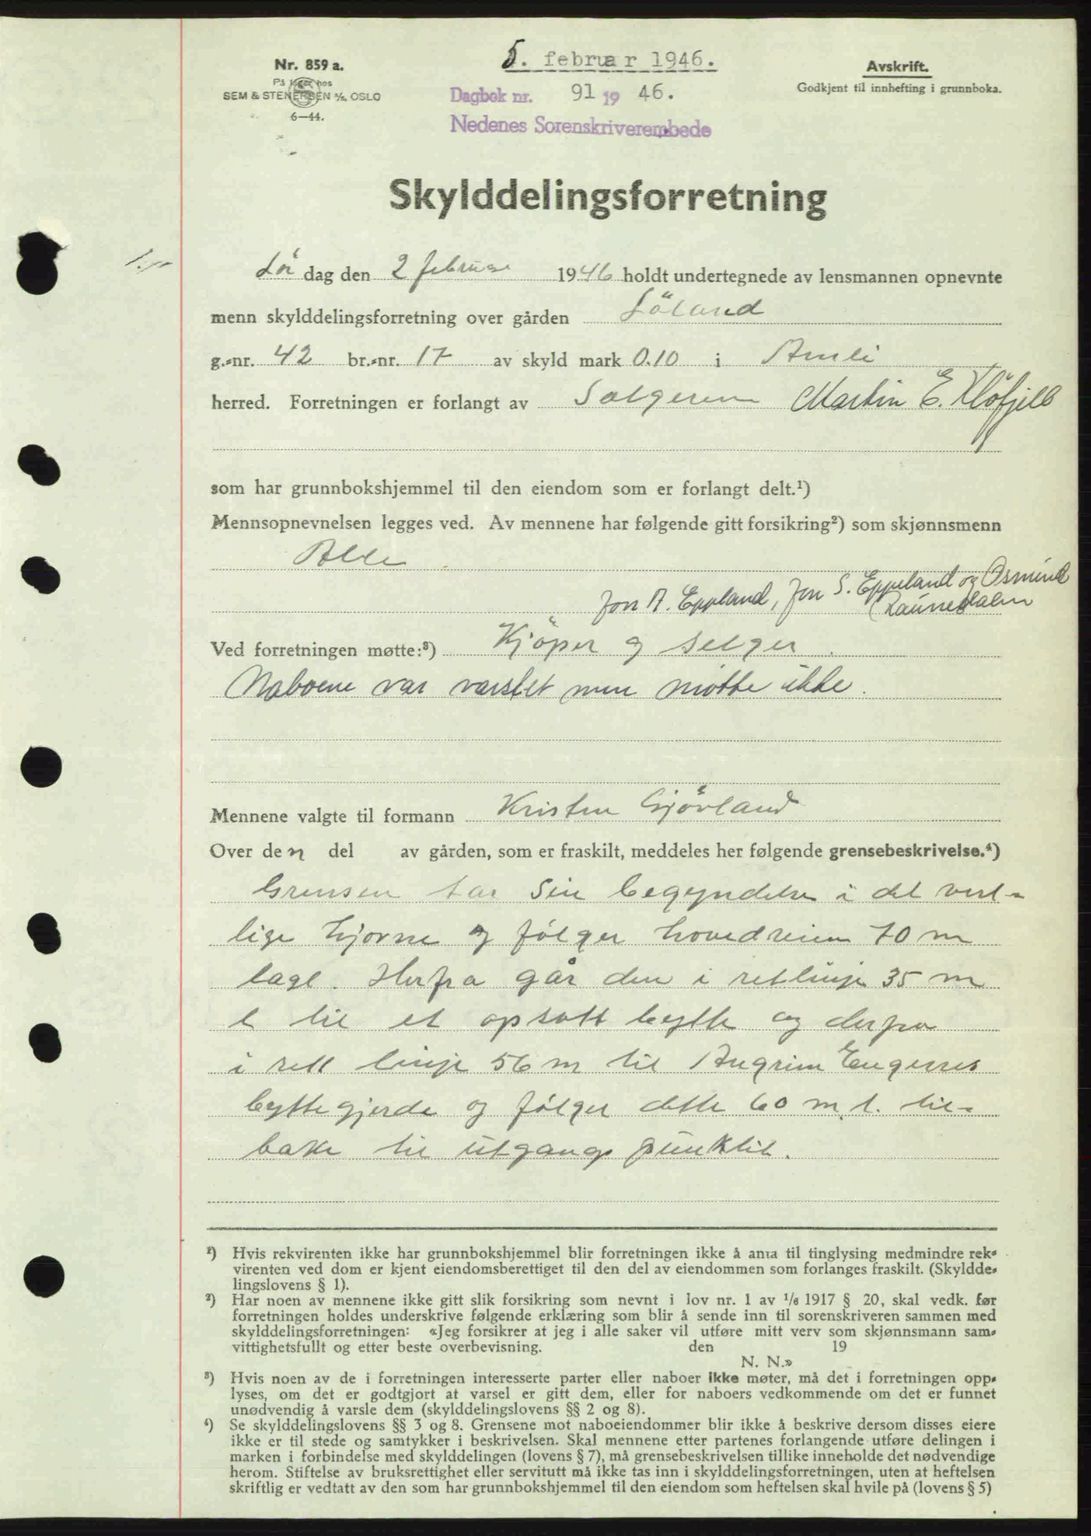 Nr. 859 a.
På lager hos
SEM & STENERSEN A/S, OSLO
6—44.
5. februar 1946.
Dagbok nr. 91 19 46.
Nedenes Sorenskriverembede
Avskrift.
Godkjent til innhefting i grunnboka.
Skylddelingsforretning
Lør dag den 2 februar 1946 holdt undertegnede av lensmannen opnevnte
menn skylddelingsforretning over gården Löland
g.-nr. 42 br.-nr. 17 av skyld mark 0.10 i Amli
herred. Forretningen er forlangt av Selgeren Martin E. Kløfjell
som har grunnbokshjemmel til den eiendom som er forlangt delt.¹)
Mennsopnevnelsen legges ved. Av mennene har følgende gitt forsikring²) som skjønnsmenn
Alle
Jon A. Eppland, Jon S. Eppeland og Osmund
Launesdalen
Ved forretningen møtte:³) Kjöper og selger.
Naboene var varslet men møtte ikke.
Mennene valgte til formann Kristen Gjövland
Over den del av gården, som er fraskilt, meddeles her følgende grensebeskrivelse.⁴)
Grensen tar sin begyndelse i det vest-
lige hjorne og følger hovedveien 70 m
langt. Herfra går den i rettlinje 35 m
l til et opsatt bytte og derfra
i rett linje 56 m til Angrim Eugenes
byttegjerde og følger dette 60 m. l. til-
bake til utgangspunktet.
¹) Hvis rekvirenten ikke har grunnbokshjemmel blir forretningen ikke å anta til tinglysing medmindre rek-
virenten ved dom er kjent eiendomsberettiget til den del av eiendommen som forlanges fraskilt. (Skyldde-
lingslovens § 1).
²) Har noen av mennene ikke gitt slik forsikring som nevnt i lov nr. 1 av 1/6 1917 § 20, skal vedk. før
forretningen holdes underskrive følgende erklæring som blir å sende inn til sorenskriveren sammen med
skylddelingsforretningen: «Jeg forsikrer at jeg i alle saker vil utføre mitt verv som skjønnsmann sam-
vittighetsfullt og etter beste overbevisning. den 19
N. N.»
³) Hvis noen av de i forretningen interesserte parter eller naboer ikke møter, må det i forretningen opp-
lyses, om det er godtgjort at varsel er gitt dem, eller for naboers vedkommende om det er funnet
unødvendig å varsle dem (skylddelingslovens §§ 2 og 8).
⁴) Se skylddelingslovens §§ 3 og 8. Grensene mot naboeiendommer blir ikke å beskrive dersom disses eiere
ikke er til stede og samtykker i beskrivelsen. Skal mennene etter partenes forlangende utføre delingen i
marken i forbindelse med skylddelingen (lovens § 7), må grensebeskrivelsen tillike inneholde det nødvendige
herom. Stiftelse av bruksrettighet eller servitutt må ikke tas inn i skylddelingsforretningen, uten at heftelsen
skriftlig er vedtatt av den som har grunnbokshjemmel til den eiendom som heftelsen skal hvile på (lovens § 5)